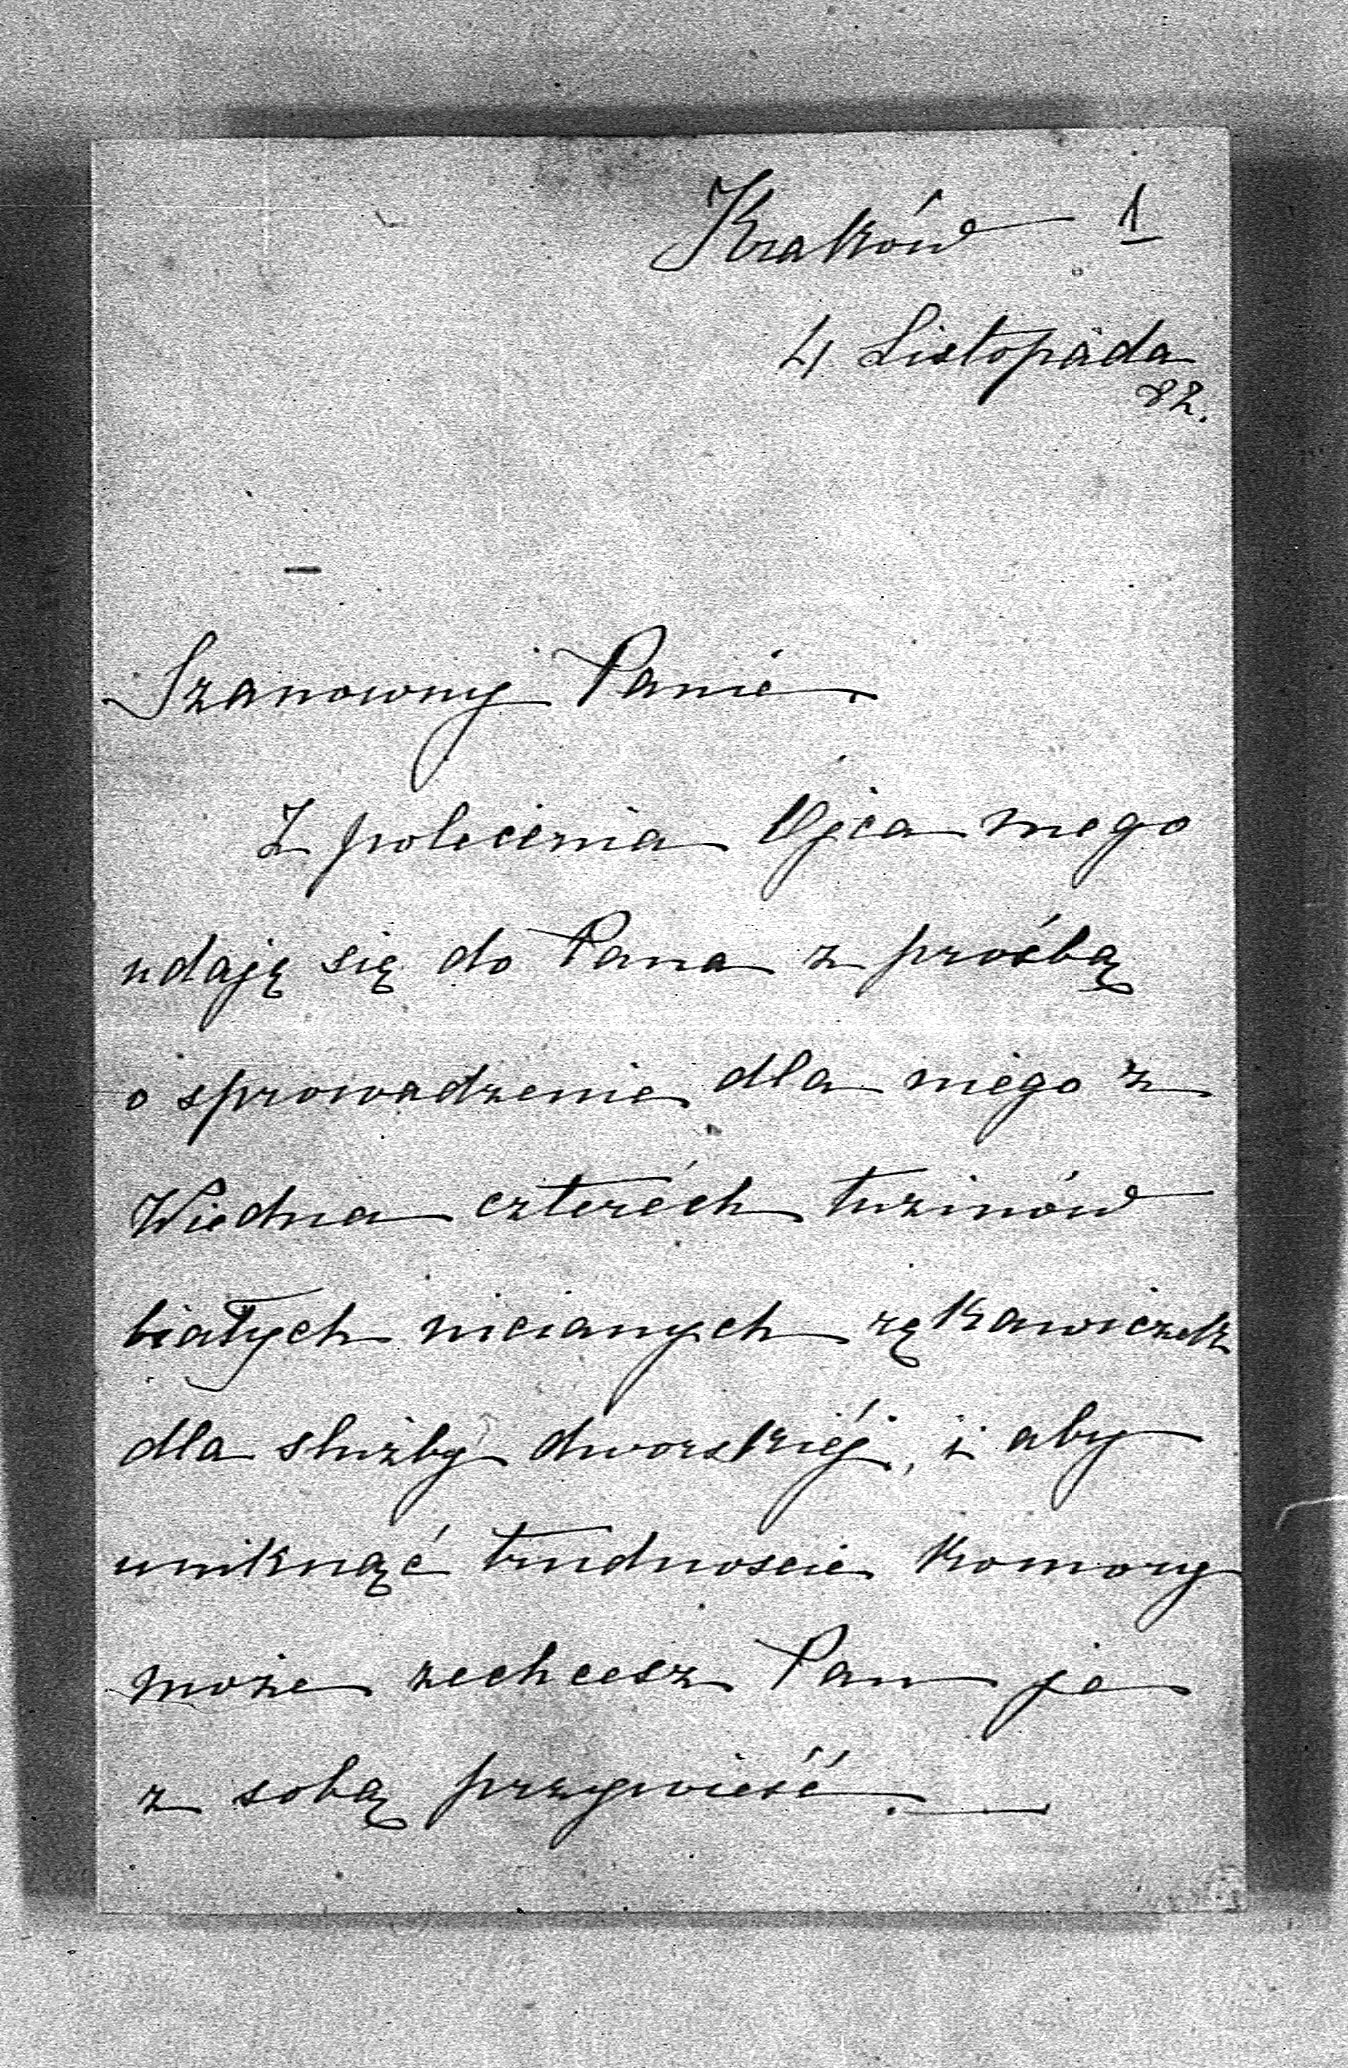 Kraków 1
4 Listopada
82.
Szanowny Panie
Z polecenia Ojca mego
udaję się do Pana z prośbą
o sprowadzenie dla niego z
Wiednia czteréch tuzinów
białych nicianych rękawiczek
dla służby dworskiéj, i aby
uniknąć trudnoscie komory
może zechcesz Pan je
z sobą przywieść.